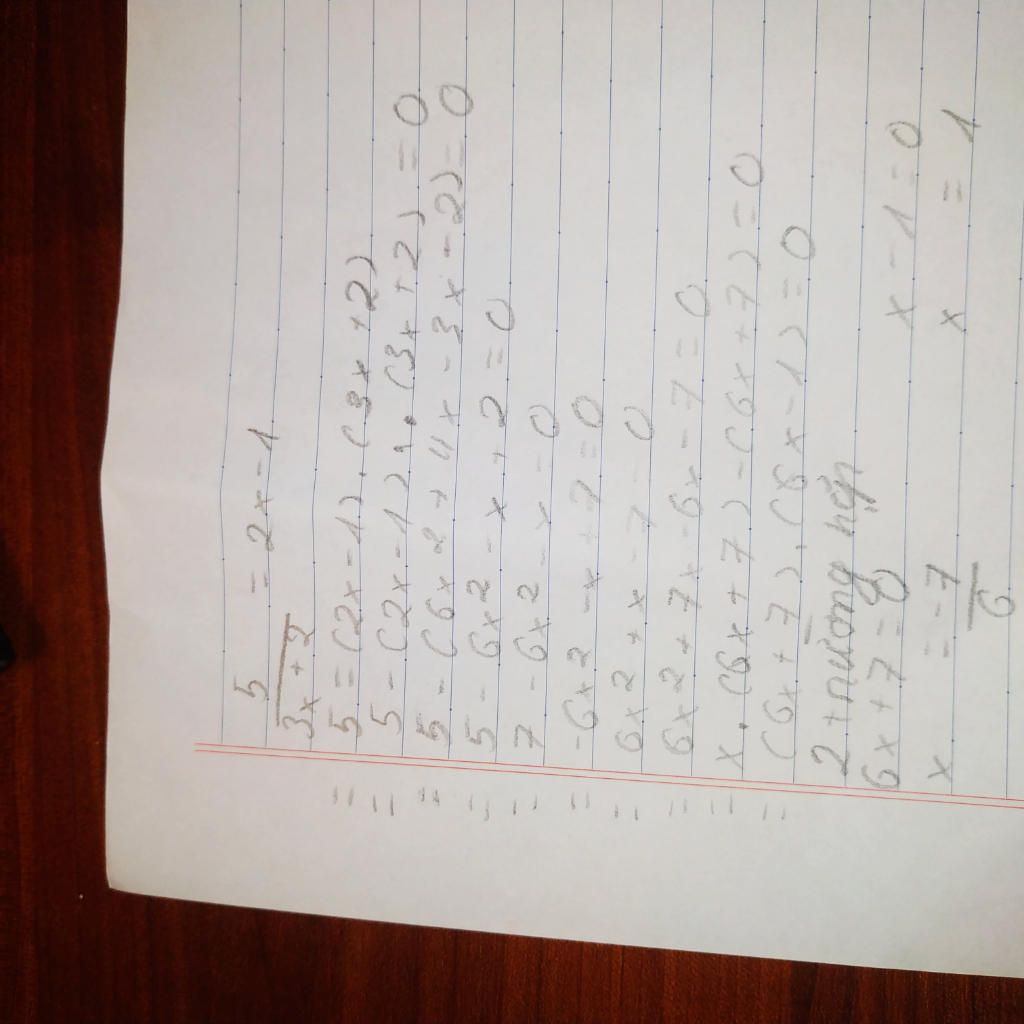 5/3x+2 = 2x-1
= 5 = (2x-1).(3x+2)
= 5-(2x-1).(3x+2)=0
= 5-(6x2+4x-3x-2)=0
= 5-6x2-x+2=0
= 7-6x2-x=0
= -6x2-x+7=0
= 6x2+x-7=0
= 6x2+7x-6x-7=0
= x.(6x+7)-(6x+7)=0
= (6x+7).(6x-1)=0
2 trường hợp
6x+7=0 x-1=0
x = -7/6 x = 1